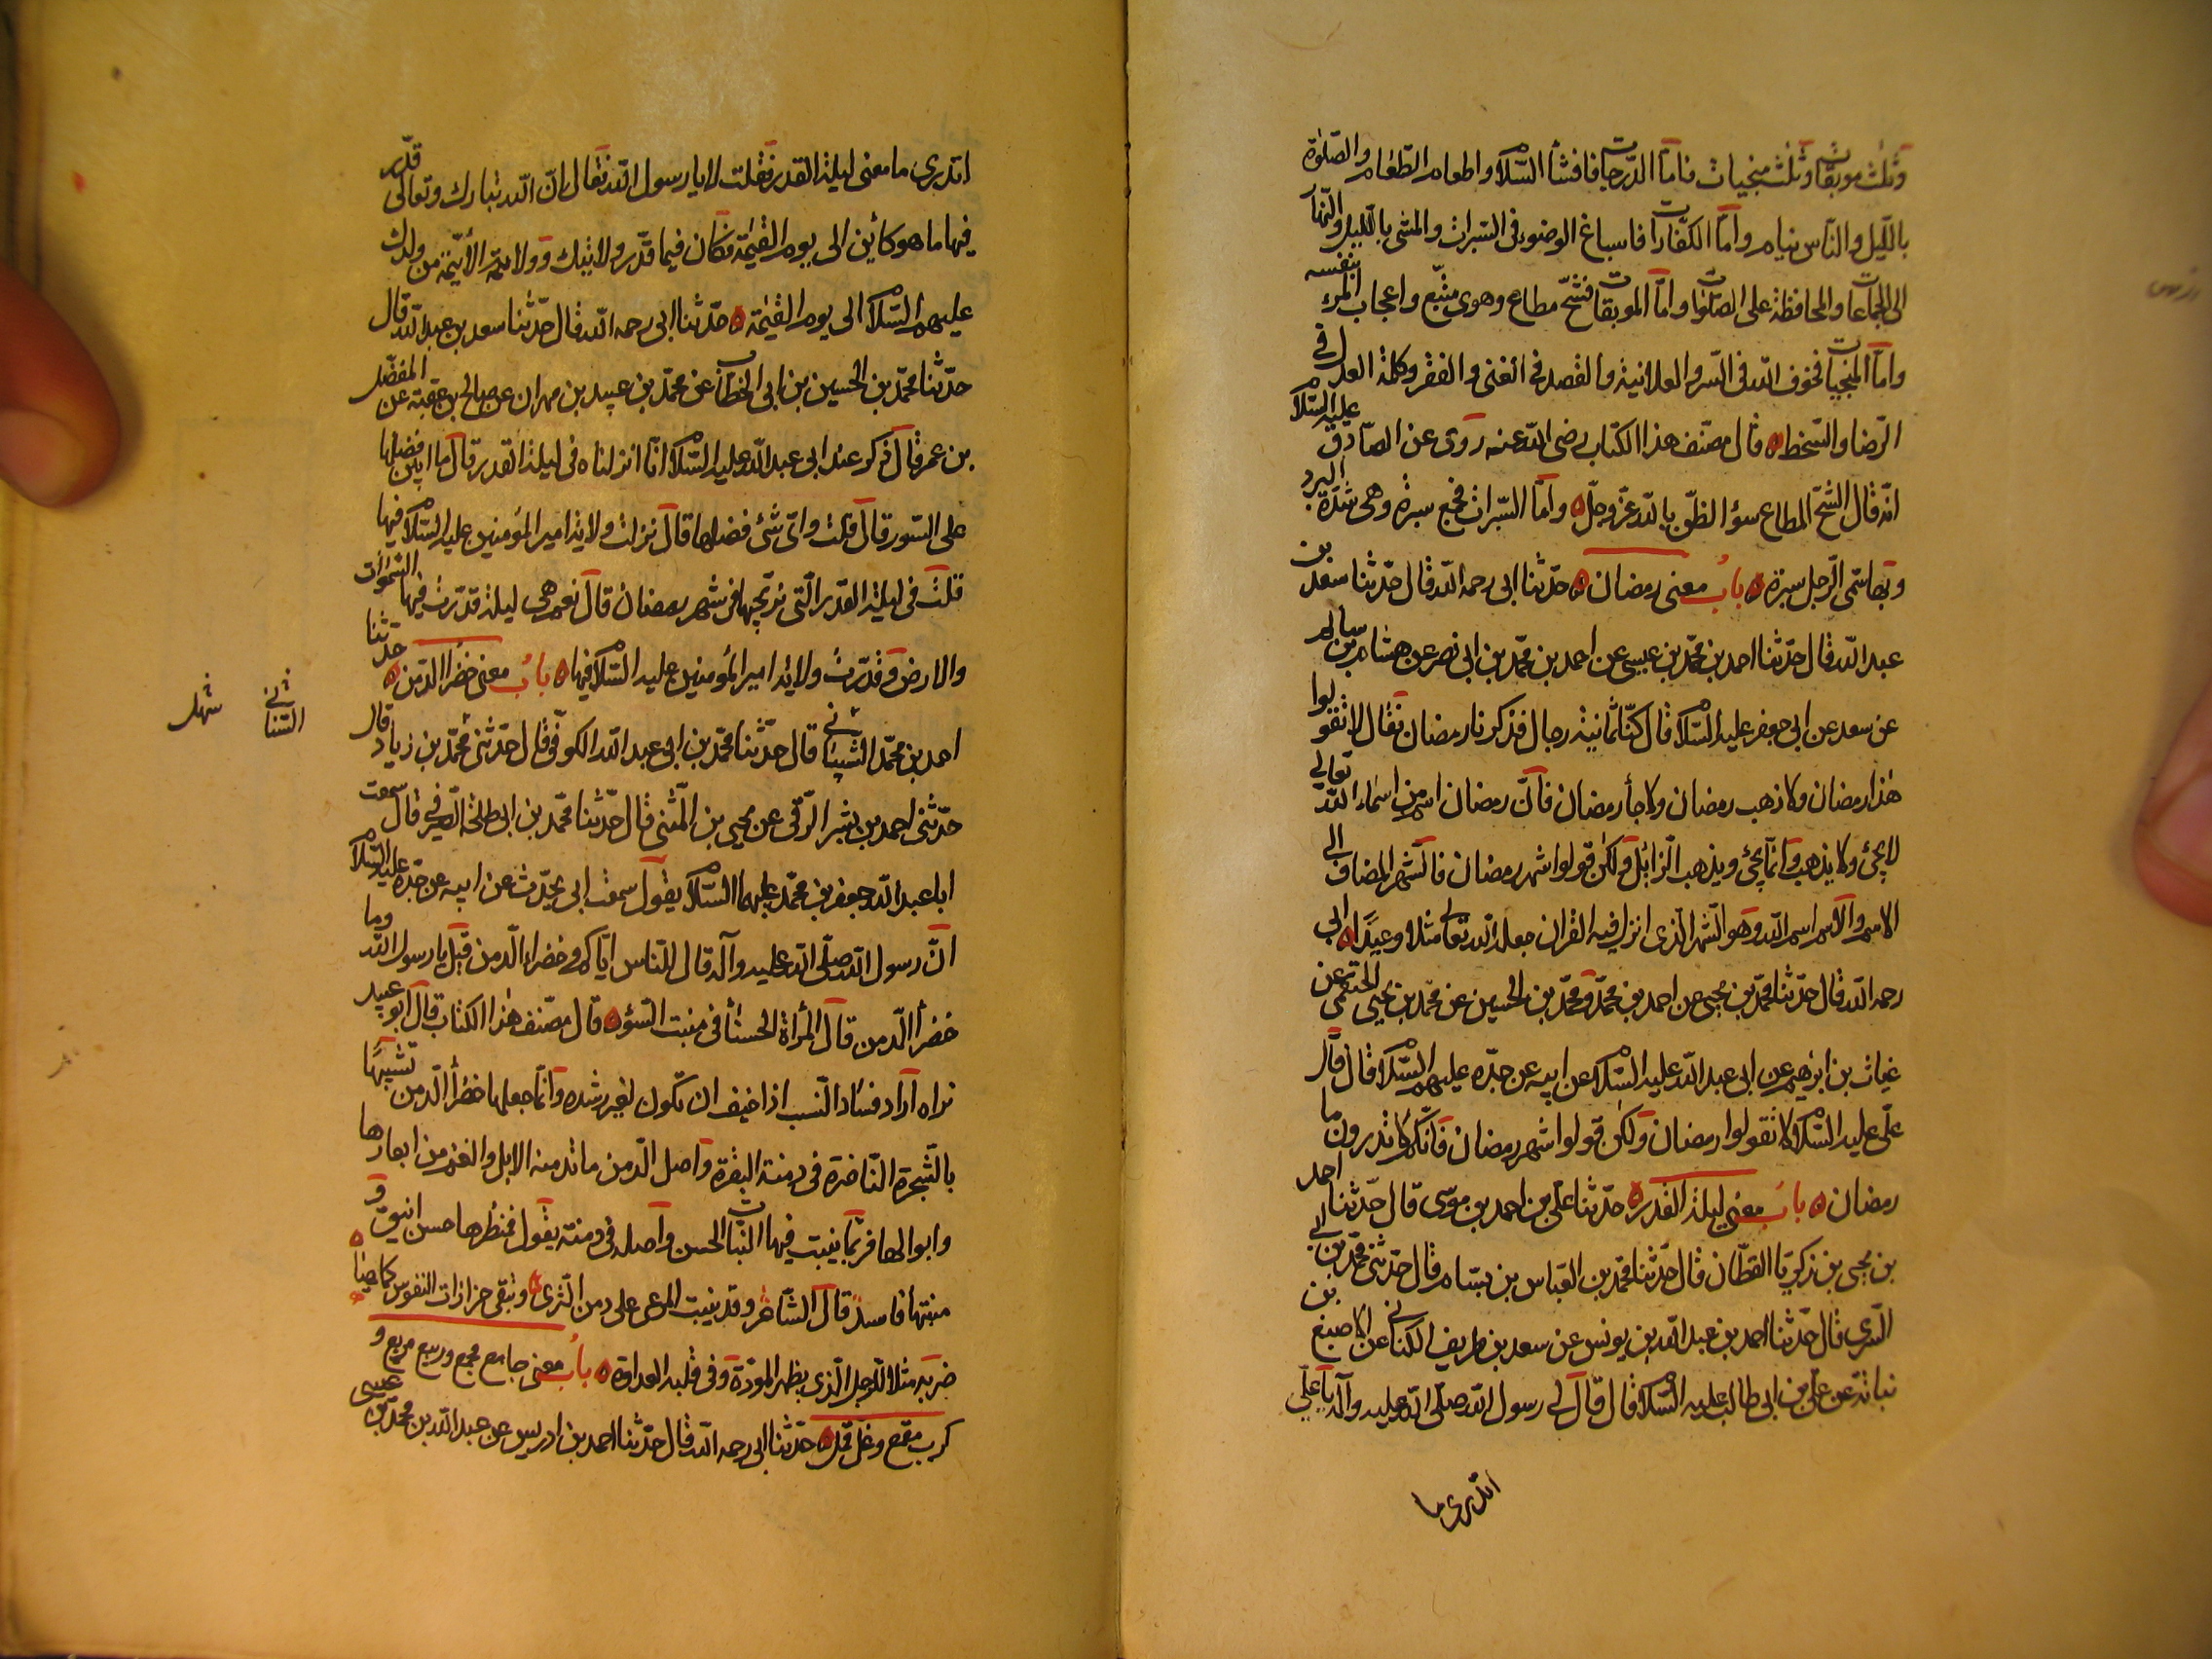 وثلث موبقات وثلث منجيات فاما الدرجات فافشأ السّلام واطعام الطعام والصّلوة
باللّيل والنّاس نيام وامّا الكفارات فاسباغ الوضوء فى السّبرات والمشى باللّيل والنّهار
الى الجماعات والمحافظة على الصلوات وامّا الموبقات فشحّ مطاع وهوى متّبع واعجاب المرء بنفسه
وامّا المنجيات فخوف اللّه فى السّر والعلانية والقصد فى الغنى والفقر وكلمة العدل فى
الرّضا والسّخط ه قال مصنّف هذا الكتاب رضى اللّه عنه روى عن الصّادق عليه السّلام
انّه قال الشّحّ المطاع سؤ الظنّ باللّه عزّ وجلّ ه وامّا السّبرات فجمع سبرة وهى شدّة البرد
وبها سمّى الرّجل سبرة ه باب معنى رمضان ه حدّثنا ابى رحمه اللّه قال حدّثنا سعد بن
عبد اللّه قال حدّثنا احمد بن محمّد بن عيسى عن احمد بن محمّد بن ابى نصر عن هشام بن سالم
عن سعد عن ابى جعفر عليه السّلام قال كنّا ثمانية رجال فذكرنا رمضان فقال لا تقولوا
هذا رمضان ولا ذهب رمضان ولا جأ رمضان فانّ رمضان اسم من اسماء اللّه تعالى
لا يجئ ولا يذهب وانّما يجئ ويذهب الزائل ولكن قولوا شهر رمضان فالشّهر المضاف الى
الاسم والاسم اسم اللّه وهو الشهر الّذى انزل فيه القران جعله اللّه تعالى مثلا وعيدا ه ابى
رحمه اللّه قال حدّثنا محمّد بن يحيى عن احمد بن محمّد ومحمّد بن الحسين عن محمّد بن يحيى الخثعمى عن
غياث بن ابرهيم عن ابى عبد اللّه عليه السّلام عن ابيه عن جدّه عليهم السّلام قال قال
علّى عليه السّلام لا تقولوا رمضان ولكن قولوا شهر رمضان فانّكم لا تدرون ما
رمضان ه باب معنى ليلة القدر ه حدّثنا علّى بن احمد بن موسى قال حدّثنا احمد
بن يحيى بن زكريّا القطّان قال حدّثنا محمّد بن العبّاس بن بسّام قال حدّثنى محمّد بن ابى
السّرى قال حدّثنا احمد بن عبد اللّه بن يونس عن سعد بن طريف الكنانى عن الاصبغ بن
نباتة عن علّى بن ابى طالب عليه السّلام قال قال لى رسول اللّه صلّى اللّه عليه وآله يا علّى
اتدرى ما
اتدرى ما معنى ليلة القدر فقلت لا يا رسول اللّه فقال انّ اللّه تبارك وتعالى قدّر
فيها ما هو كائن الى يوم القيمة فكان فيما قدّر ولايتك وولاية الأئمّة من ولدك
عليهم السّلام الى يوم القيمة ه حدّثنا ابى رحمه اللّه قال حدّثنا سعد بن عبد اللّه قال
حدّثنا محمّد بن الحسين بن ابى الخطاب عن محمّد بن عبيد بن مهران عن صالح بن عقبة عن المفضّل
بن عمر قال ذكر عند ابى عبد اللّه عليه السّلام انّا انزلناه فى ليلة القدر قال ما ابين فضلها
على السّور قال قلت واىّ شئ فضلها قال نزلت ولاية امير المؤمنين عليه السّلام فيها
قلت فى ليلة القدر الّتى نرتجيها فى شهر رمضان قال نعم هى ليلة قدّرت فيها السّموات
والارض وقدّرت ولاية امير المؤمنين عليه السّلام فيها ه باب معنى خضرا الدّمن ه حدّثنا
احمد بن محمّد الشيبانى قال حدّثنا محمّد بن ابى عبد اللّه الكوفى قال حدّثنى محمّد بن زياد قال
السّنانى
سهل
حدّثنى احمد بن بشر الرّقى عن يحيى بن المثنى قال حدّثنا محمّد بن ابى طلحة الصّيرفى قال سمعت
ابا عبد اللّه جعفر بن محمّد عليهما السّلام يقول سمعت ابى يحدّث عن ابيه عن جدّه عليه السّلام
انّ رسول اللّه صلّى اللّه عليه وآله قال للنّاس ايّاكم وخضراء الدّمن قيل يا رسول اللّه وما
خضرأ الدّمن قال المرأة الحسنأ فى منبت السّؤ ه قال مصنف هذا الكتاب قال ابو عبيد
نراه اراد فساد النّسب اذا خيف ان تكون لغير رشده وانّما جعلها خضرأ الدّمن تشبيهًا
بالشّجرة النّاضرة فى دمنة البقرة واصل الدّمن ما تدمنه الابل والغنم من ابعارها
وابوالها فربّما ينبت فيها النبات الحسن واصله فى دمنة يقول فمنظرها حسن انيق و
منبتها فاسد قال الشّاعر وقد ينبت المرعى على دمن الثّرى ه وتبقى حزازات النفوس كما هيا ه
ضربه مثلا للرّجل الّذى يظهر المودّة وفى قلبه العداوة ه باب معنى جامع مجمع وربيع مربع و
كرب مقمع وغلّ قمل ه حدّثنا ابى رحمه اللّه قال حدّثنا احمد بن ادريس عن عبد اللّه بن محمّد بن عيسى